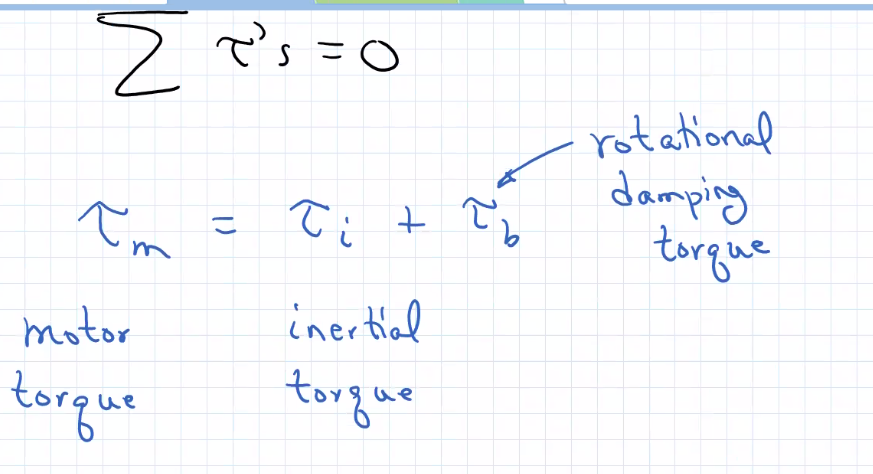 ∑ τ's = 0
rotational
damping
torque
τₘ = τᵢ + τ_b
motor
torque
inertial
torque